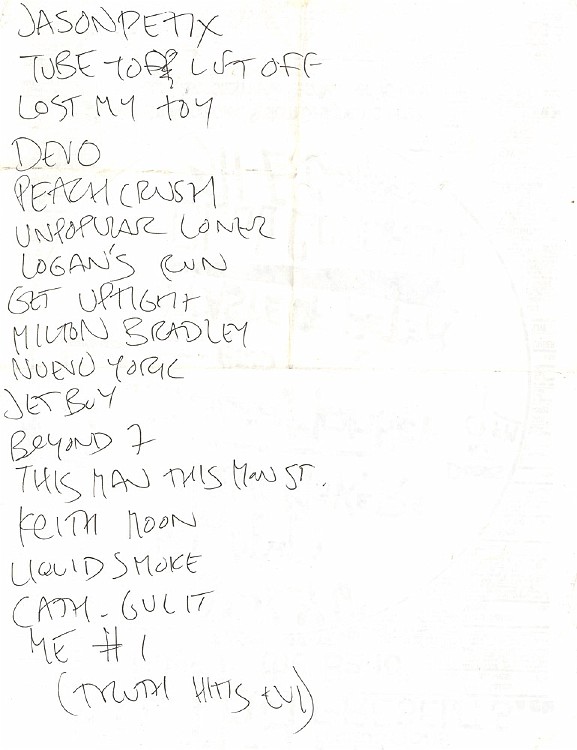 JASON PETIX
TUBE TOP LIFT OFF
LOST MY TOY
DEVO
PEACH CRUSH
UNPOPULAR LONER
LOGAN'S RUN
GET UPTIGHT
MILTON BRADLEY
NUEVO YORK
JET BOY
BEYOND 7
THIS MAN THIS MONST.
KEITH MOON
LIQUID SMOKE
CATH. GUILT
ME #1
(TRUTH HITS EV)